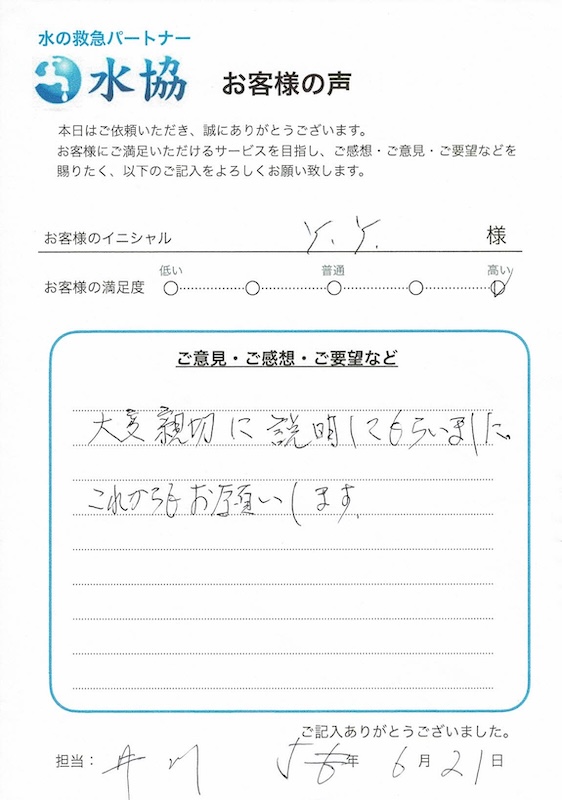 水の救急パートナー
水協 お客様の声
本日はご依頼いただき、誠にありがとうございます。
お客様にご満足いただけるサービスを目指し、ご感想・ご意見・ご要望などを
賜りたく、以下のご記入をよろしくお願い致します。
お客様のイニシャル Y.Y. 様
低い 普通 高い
お客様の満足度
ご意見・ご感想・ご要望など
大変親切に説明してもらいました。
これからもお願いします。
ご記入ありがとうございました。
担当： 井川 5年 6月21日